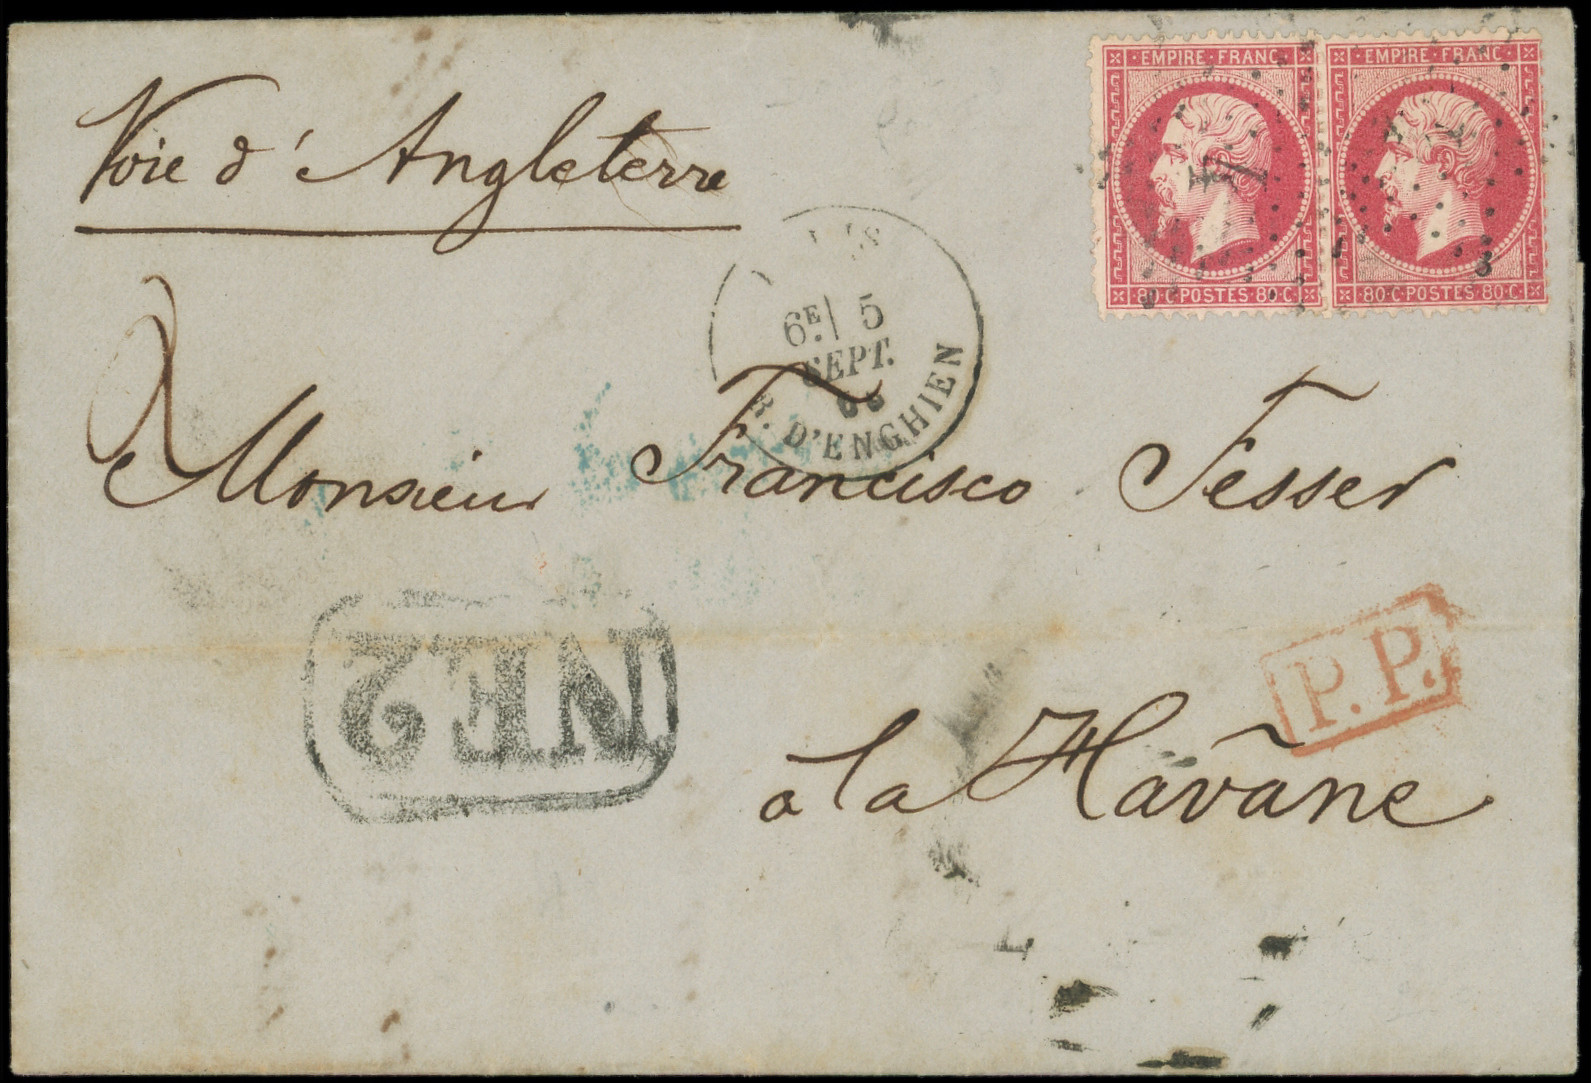 EMPIRE · FRANC · EMPIRE · FRANC
80·C·POSTES·80·C· 80·C·POSTES·80·C·
Voie d'Angleterre
6E 5
SEPT.
R. D'ENGHIEN
Monsieur Francisco Fesser
NE 2
P.P.
à la Havane